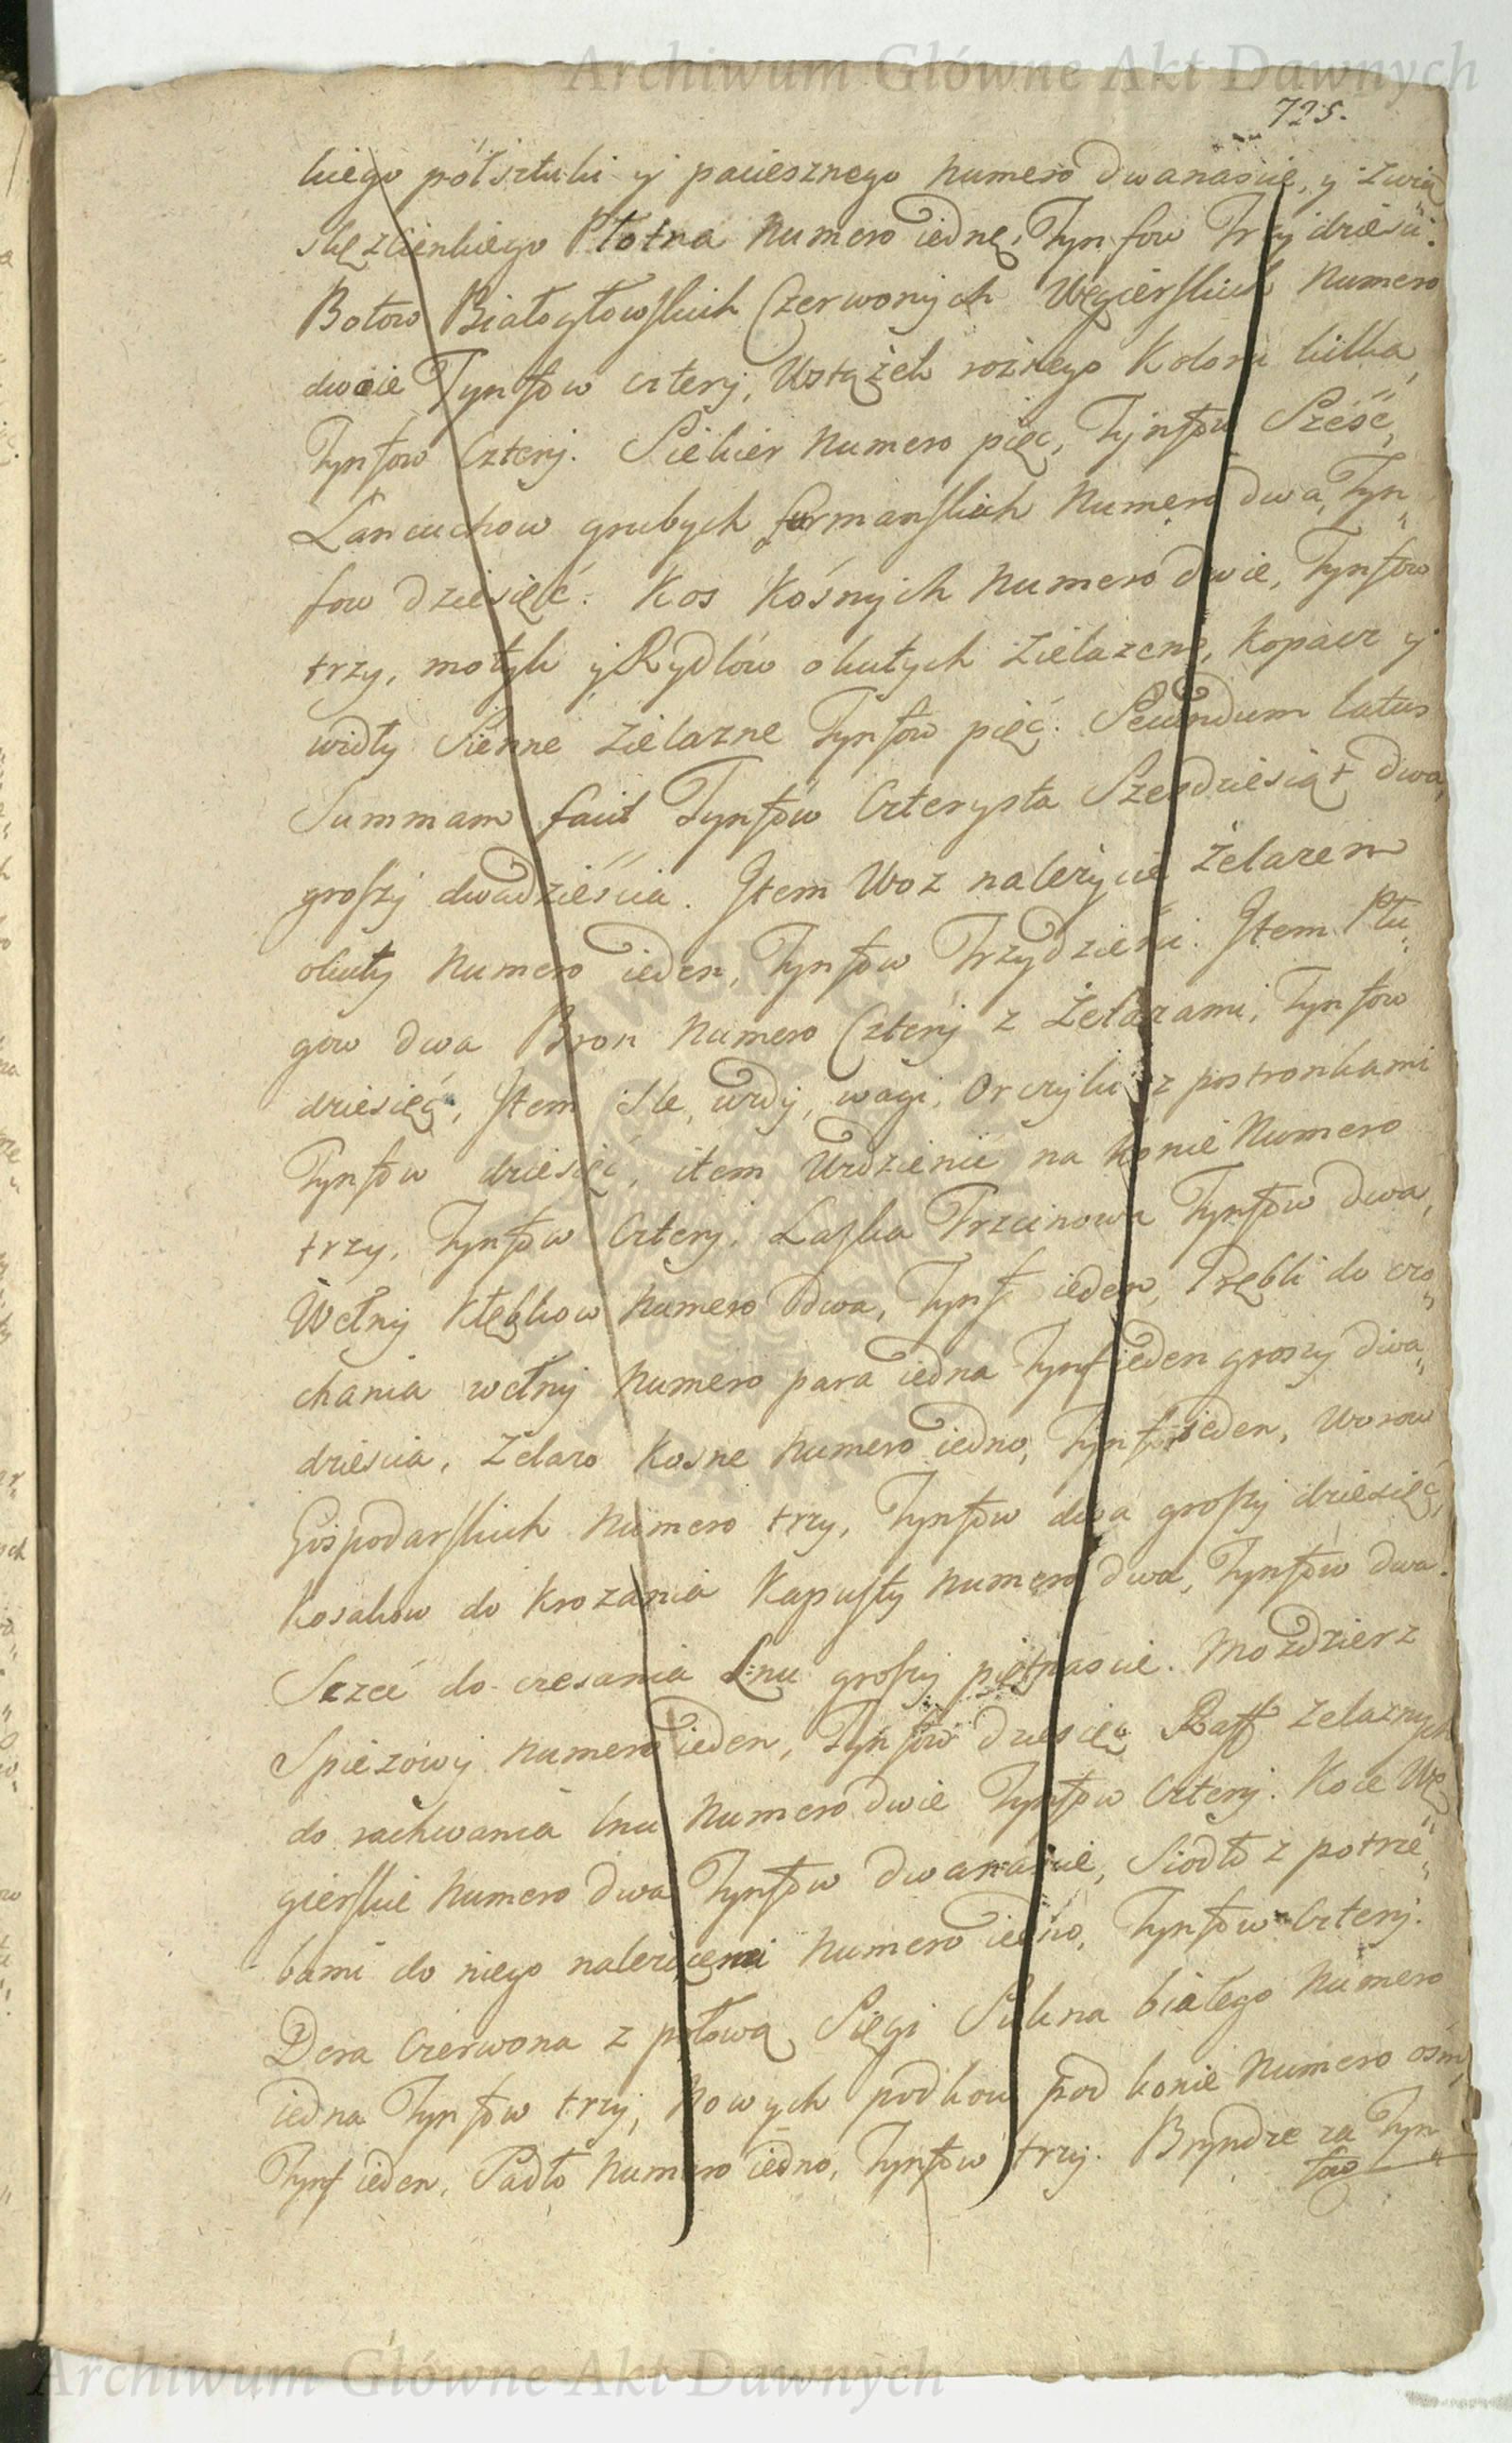 Archiwum Główne Akt Dawnych
725.
kiego półsztuki y paciesznego Numero dwanascie, y zwią
skę zcienkiego Płotna Numero iednę, Tynfow Trzydziesci.
Botow Białogłowskich Czerwonych Węgierskich Numero
dwoie Tynfow cztery, Wstążek rożnego Koloru kilka,
Tynfow Cztery. Siekier Numero pięc, Tynfow Sześć,
Łancuchow grubych furmanskich Numero dwa, Tyn„
fow dziesięć. Kos Kośnych Numero dwie, Tynfow
trzy, motyk y Rydlów okutych Zielazem, kopacz y
widły Sienne Zielazne Tynfow pięć. Secundum latus
Summam facit Tynfów Czterysta Szesdziesiąt dwa,
groszy dwadzieścia. Item Woz należycie Żelazem
okuty Numero ieden, Tynfow Trzydzieści. Item Płu„
gow dwa Bron Numero Cztery z Żelazami, Tynfow
dziesięć, Item Sle, uzdy, wagi, Orczyki z postronkami
Tynfow dziesięć, item Uzdzienic na konie Numero
trzy, Tynfow Cztery. Laska Trzcinowa Tynfow dwa,
Wełny Kłębkow Numero dwa, Tynf ieden, Zrębli do czo„
chania wełny Numero para iedna Tynf ieden groszy dwa„
dziescia, Zelazo Kosne Numero iedno, Tynf ieden, Worow
Gospodarskich Numero trzy, Tynfow dwa groszy dziesięć,
Kosakow do Krozania Kapusty Numero dwa, Tynfow dwa.
Szczeć do czesania Lnu groszy piętnascie. Mozdzierz
Spiezowy Numero ieden, Tynfow dziesięć Raff zelaznych
do rachwania lnu Numero dwie Tynfow Cztery. Koce Wę„
gierskie Numero dwa Tynfow dwanascie, Siodło z potrze„
bami do niego nalezącemi Numero iedno, Tynfow Cztery.
Dera Czerwona z połową Sięgi Sukna białego Numero
iedna Tynfow trzy, Nowych podkow pod konie Numero ośm,
Tynf ieden, Sadło Numero iedno, Tynfow trzy. Bryndze za Tyn„
fow
Archiwum Główne Akt Dawnych